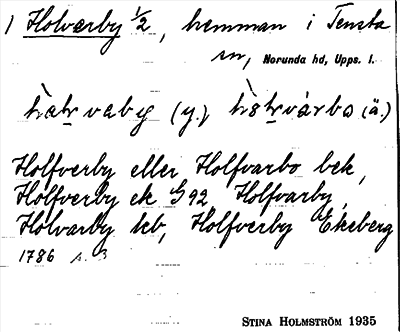 1 Holvarby 1/2, hemman i Tensta
sn, Norunda hd, Upps. l.
(y.) (ä.)
Holfverby eller Holfvarbo bek,
Holfverby ek G92, Holfvarby,
Holvarby hb, Holfverby Ekeberg
1786 s. 3
STINA HOLMSTRÖM 1935